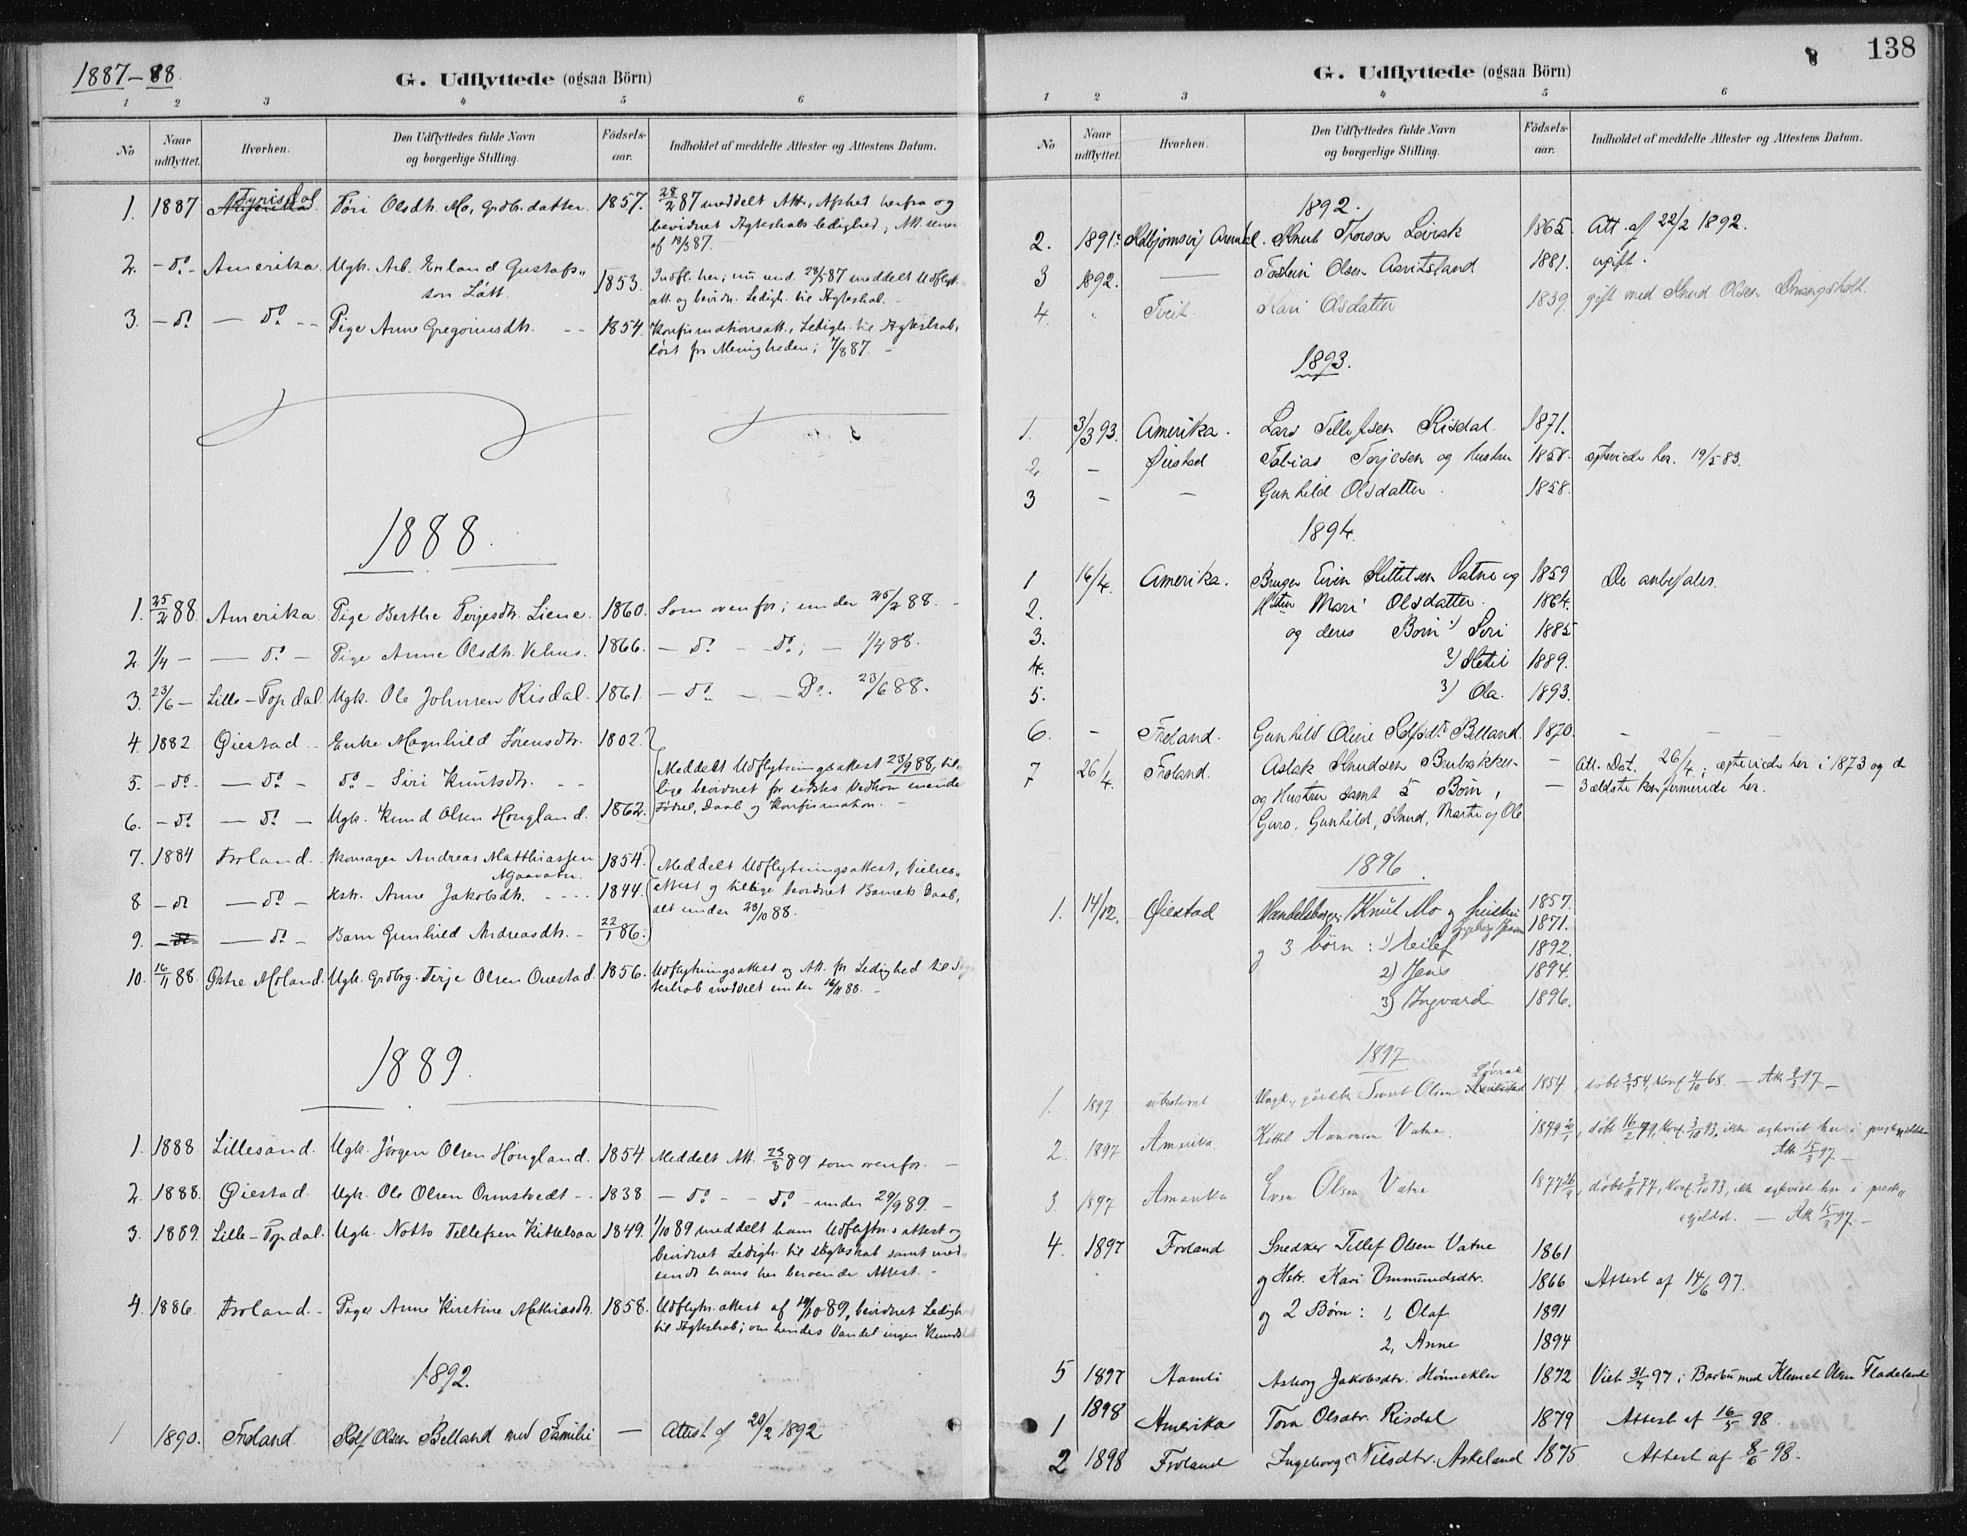 1887–88.
G. Udflyttede (ogsaa Börn)
1 2 3 4 5 6
No
Naar udflyttet.
Hvorhen.
Den Udflyttedes fulde Navn og borgerlige Stilling.
Födsels-aar.
Indholdet af meddelte Attester og Attestens Datum.
1. 1887 Tyrisdal Töri Olsdtr. Mo, Grdbr. datter 1857. 28/2 87 meddelt Att., Afsked herfra og
bevidnet Ægteskabs ledighed; Att. senere
af 19/3 87.
2. – do – Amerika Ugk. Arb. Erland Gustafs„ 1853. Indfl. her; nu und. 28/5 87 meddelt Udflytt.
son Lått. att. og bevidn. Ledigh. til Ægteskab. –
3. – do – do – Pige Anne Gregoriusdtr. 1854. Konfirmationsatt., Ledigh. til Ægteskab,
löst fra Menigheden; 7/8 87. –
1888.
1. 25/2 88. Amerika Pige Berthe Terjesdtr. Liene 1860. Som ovenfor; under 25/2 88. –
2. 1/4 – – do – Pige Anne Olsdtr. Vehus. 1866. – do – do; – 1/4 88.
3. 23/6 – Lille-Topdal. Ugk. Ole Johnsen Risdal. 1861. – do – Do. 23/6 88.
4. 1882. Øiestad Enke Magnhild Sörensdtr. 1802.
5. – do – – do – do – Siri Knutsdtr. Meddelt Udflytningsattest 23/9 88, til-
lige bevidnet for sidstes Vedkommende
6. – do – – do – Ugk. Knud Olsen Hougland. 1862. Födsel, Daab og Konfirmation. –
7. 1884 Froland. Skomager Andreas Matthiassen 1854. Meddelt Udflytningsattest, Vielses-
8 – do – do – Hstr. Anne Jakobsdtr. 1844. attest og tillige bevidnet Barnets Daab,
alt under 23/10 88.
9. – do – Barn Gunhild Andreasdtr. – 22/1 86.
10. 16/11 88. Østre Moland. Ugk. Grdbrg. Terje Olsen Ouestad 1856. Udflytningsattest og Att. for Ledighed til Æg-
teskab meddelt under 16/11 88. –
1889.
1. 1888 Lillesand. Ugk. Jörgen Olsen Hougland. 1854. Meddelt Att. 23/3 89 som ovenfor. –
2. 1888. Øiestad. Ugk. Ole Olsen Ormstvedt – 1838 – do – do – under 29/9 89. –
3. 1889. Lille-Topdal. Ugk. Notto Tellefsen Kittelsaa 1849. 1/10 89 meddelt ham Udflytn.s attest og
bevidnet Ledigh. til Ægteskab samt med-
sendt hans her beroende Attest. –
4. 1886. Froland. – Pige Anne Kirstine Mathiasdtr. 1858. Udflytn. attest af 19/10 89, bevidnet Ledigh.
til Ægteskab; om hendes Vandel ingen Kunds
1892.
1 1890. Froland Rolf Olsen Belland med Familie – Attest af 20/2 1892
138
G. Udflyttede (ogsaa Börn)
1 2 3 4 5 6
No
Naar udflyttet.
Hvorhen.
Den Udflyttedes fulde Navn og borgerlige Stilling.
Födsels-aar.
Indholdet af meddelte Attester og Attestens Datum.
1892.
2. 1891. Arendal. Knut Thorsen Leirak 1865. Att. af 22/2 1892.
3 1892. Olsen 1881. ugift.
4. " Tveit. Kari Olsdatter 1839. gift med Knud Olsen
1893.
1. 3/3 93. Amerika. Lars Tellefsen Risdal. 1871.
2. – Øiestad Tobias Terjesen og Hustru 1858. ægteviede her. 19/5 83.
3 – – Gunhild Olsdatter. 1858.
1894.
1 16/4. Amerika. Bruger Even Kittilsen Vatne og 1859 De anbefales.
2. Hstru Mari Olsdatter. 1864.
3. og deres Børn 1) Siri 1885
4. 2) Kittil 1889.
5. 3) Ola. 1893.
6. – Froland. Gunhild Oline Rolfsdtr. Belland. 1870. –
7 26/4. Froland. Aslak Knudsen – Att. Dat. 26/4; ægteviede her i 1873 og de
og Hustru samt 5 Børn, – 3 ældste konfirmerede her.
Guro, Gunhild, Knud, Marthe og Ole
1896.
1. 14/12. Øiestad Handelsborger Knut Mo og hustru 1857.
Ingeborg Jensen 1871.
og 3 börn: 1) Neilef 1892.
2) Jens 1894.
3) Ingvard 1896.
1897
1. 1897 ubestemt Ungk., gårdbr. Olsen Løvrak 1854, döbt 2/3 54, konf. 4/10 68. – Att. 2/3 97. –
2. 1897 Amerika Kittil Aanonsen Vatne. 1879, döbt 16/2 79, konf. 3/10 93, ikke ægteviet her i prestegjeldet
Att. 15/3 97. –
3. 1897 Amerika Even Olsen Vatne 1877, döbt 77, konf. 93, ikke ægteviet her i preste„
gjeldet. – Att. 15/3 97. –
4. 1897 Froland Snedker Tellef Olsen Vatne 1861
og Hstr. Kari Ommundsdtr. 1866 Attest af 14/6 97.
og 2 Børn: 1, Olaf 1891
2, Anne 1894
5 1897 Aamli Asborg Jakobsdtr. 1872 Viet 97 i Barbu med Klemet Olsen Fladeland
1 1898 Amerika Tora Olsdtr. Risdal 1879 Attest af 16/5 98.
2 1898 Froland Ingeborg Nilsdtr. Askeland 1875 Attest af 8/6 98.